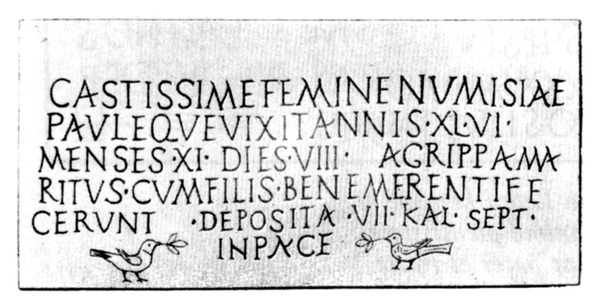 CASTISSIMEFEMINENUMISIAE
PAULEQUEUIXITANNIS·XL·VI·
MENSES·XI· DIES·VIII· AGRIPPAMA
RITVS·CVMFILIS·BENEMERENTIFE
CERUNT ·DEPOSITA ·VII·KAL·SEPT·
INPACE